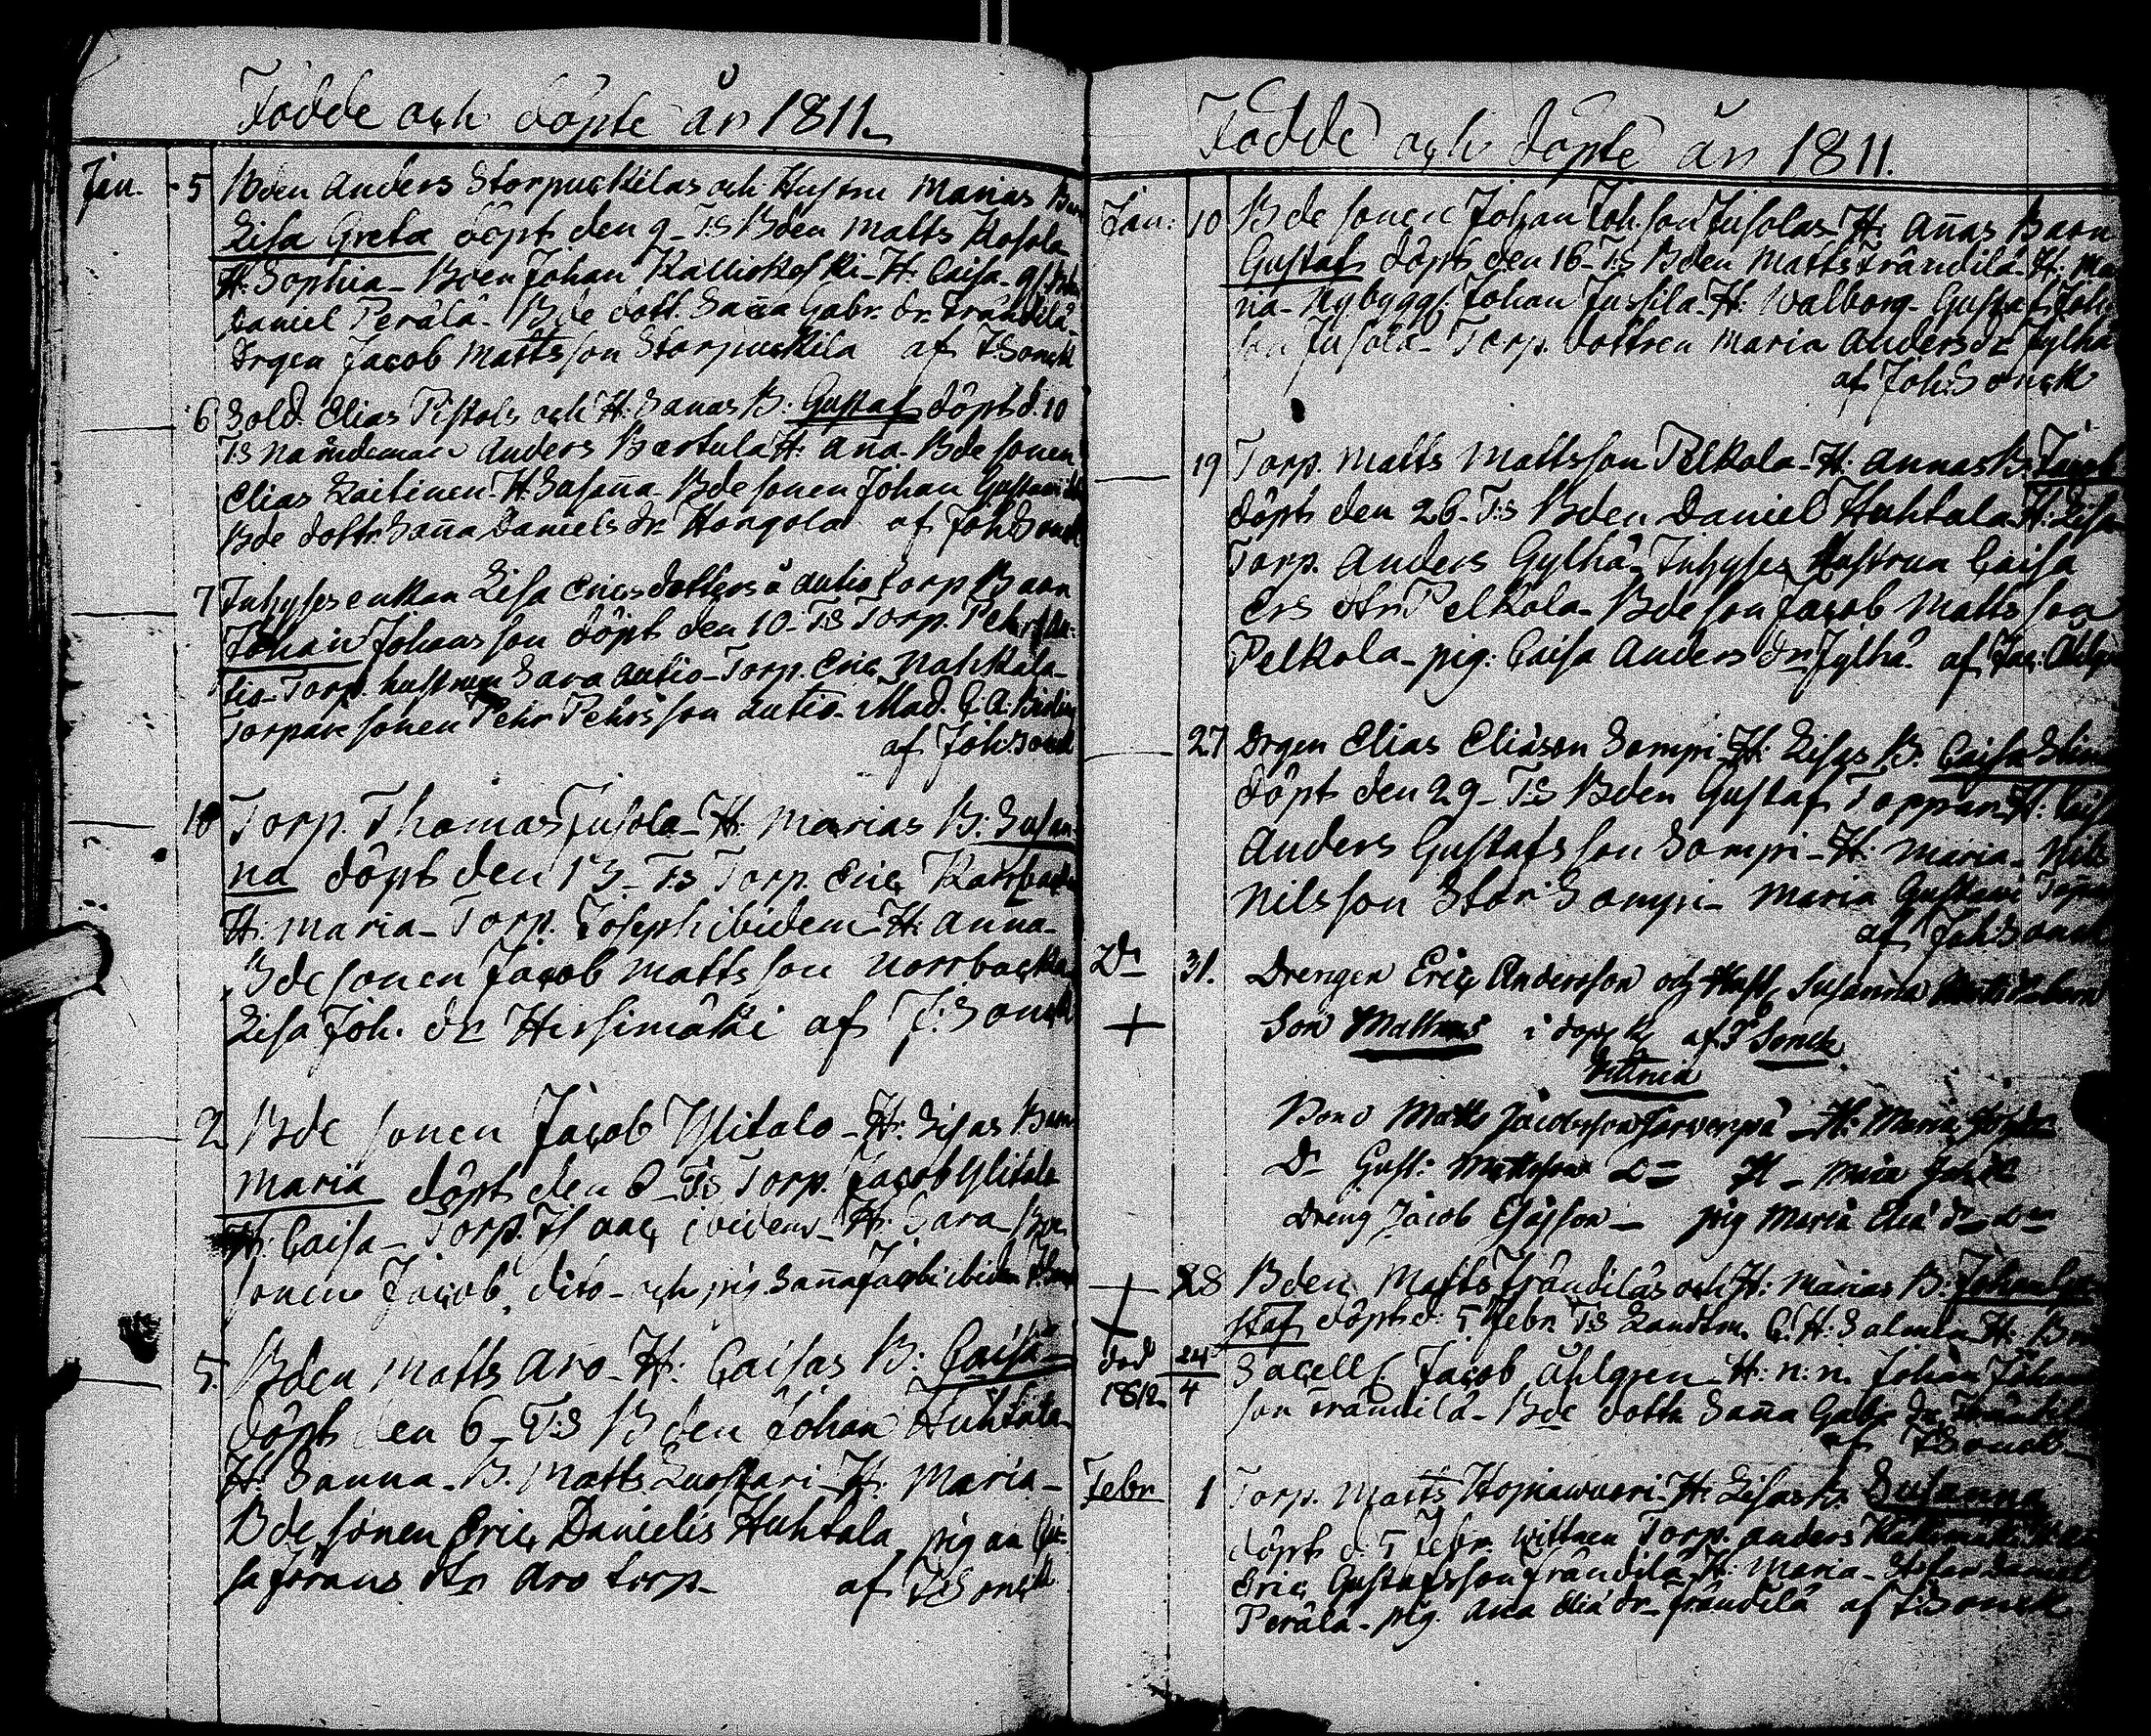 Födde och döpte år 1811.
Jan. 5 Bden Anders Storpuckilas och Hustru Marias
Lisa Greta döpt den 9 - T:s Bden Matts Kosola
H: Sophia - Bden Johan Kalliokoski - H: Caisa -
Daniel Perälä - Bde dott. Sanna Gabr. dr. Frändilä
Drgen Jacob Mattsson Storpuckila af J:Sonck
6 Sold. Elias Pistols och H: Sanas B: Gustaf döpt d. 10
T:s Nämdeman Anders Bertula H: Anna - Bde sonen
Elias Laitinen - H: Susanna - Bde sonen Johan
Bde dottr. Sanna Daniels dr. Hongola af Joh:Sonck
7 Inhyses enkan Lisa Ericsdotters å Autio torp Barn
Johan Johansson döpt den 10 - T:s Torp. Pehr Au-
tio - Torp. hustrun Sara Autio - Torp. Eric Nahkala -
Torpare sonen Pehr Pehrsson Autio - Mad. C. A.
af Joh:Sonck
10 Torp. Thomas Jusola - H: Marias B: Susan-
na döpt den 13 - T:s Torp. Eric
H: Maria - Torp. Joseph ibidem - H: Anna -
Bde sonen Jacob Mattsson Norrbacka
Lisa Joh. dr Hirsimäki af J:Sonck
2 Bde sonen Jacob Ylitalo - H: Lisas Barn
Maria döpt den 8 - T:s Torp. Jacob Ylitalo
H: Caisa - Torp. Isaac ibidem - H: Sara - Bde
sonen Jacob dito - och pig. Sanna Jacobi ibidem
5. Bden Matts Aro - H: Caisas B: Caisa
döpt den 6 - T:s Bden Johan Huhtala
H: Sanna - B. Matts Luostari - H: Maria -
Bde sonen Eric Danielis Huhtala pigan Cai-
sa Görans dr Aro torp - af J:Sonck
Födde och döpte år 1811.
Jan: 10 Bde sonen Johan Joh:son Jusolas - H: Annas Barn
Gustaf döpt den 16 - T:s Bden Matts Frändilä - H: Ma
na - Nybygg. Johan Jussila - H: Walborg - Gustaf Joh
son Jusola - Torp. dottren Maria Anders dr Jylhä
af Joh:Sonck
19 Torp. Matts Mattsson Pelkola - H: Annas B: Jacob
döpt den 26 - T:s Bden Daniel Huhtala - H: Lisa
Torp. Anders Gylhä - Inhyses Hustrun Caisa
Ers dtr Pelkola - Bde son Jacob Mattsson
Pelkola - pig: Caisa Anders dr Jylhä af Jac: Ahlgr
27 Drgen Elias Eliason Sompi - H: Lisas B. Caisa
döpt den 29 - T:s Bden Gustaf Toppari - H: Caisa
Anders Gustafsson Sompi - H: Maria - Nils
Nilsson Stor Sompi - Maria Gustavi
af Joh:Sonck
Do 31. Drengen Eric Andersson och Hust. Susanna
+ Son Matthias i dop k. af J Sonck
Vittnen
Bond Matts Jacobsson Jarvenpä - H: Maria
Do Gust: Mattsson Do H - Maria
Dreng Jacob Esajson - pig Maria Elia dr
+ 28 Bden Matts Frändiläs och H: Marias B: Johan Gu-
+ staf döpt d. 5 Febr. T:s Landtm. C. H: Salmén H:
död 24/4 Sacell. Jacob Ahlgren - H: n:n. Johan Johan
1812 son Frändilä - Bde dottr. Sanna Gabr. dr. Frändilä
af J:Sonck
Febr 1 Torp. Matts Hojnawuori - H: Lisas B. Susanna
döpt d. 5 Febr. Wittnen Torp. Anders
Eric Gustafsson Frändilä - H: Maria - Daniel
Perälä - pig. Anna Elia dr - Frändilä af J:Sonck